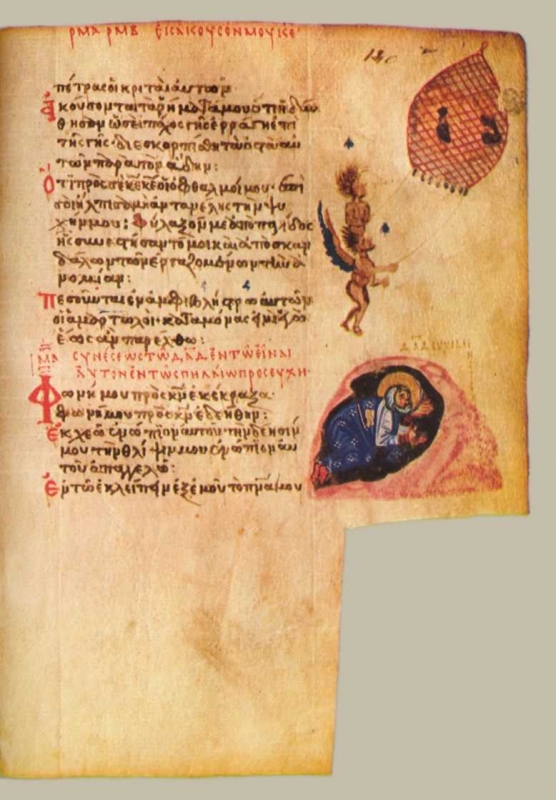 ρμα ρμβ εἰσάκουσόν μου κε
πέτρας οἱ κριταὶ αὐτῶν·
Ἀκούσονται τὰ ῥήματά μου ὅτι ἡδύν
θησαν ὡσεὶ πάχος γῆς ἐρράγη ἐπὶ
τῆς γῆς· διεσκορπίσθη τὰ ὀστᾶ αὐ
τῶν παρὰ τὸν ἅδην:
Ὅτι πρὸς σὲ κε κε οἱ ὀφθαλμοί μου· ἐπὶ
σοὶ ἤλπισα μὴ ἀντανέλης τὴν ψυ
χήν μου: Φύλαξόν με ἀπὸ παγίδος
ἧς συνεστήσαντό μοι καὶ ἀπὸ σκαν
δάλων τῶν ἐργαζομένων τὴν ἀ
νομίαν:
Πεσοῦνται ἐν ἀμφιβλήστρω αὐτῶν
οἱ ἁμαρτωλοί· κατὰ μόνας εἰμὶ ἐγὼ
ἕως ἂν παρέλθω:
ρμα συνέσεως τῶ δαδ ἐν τῶ εἶναι
αὐτὸν ἐν τῶ σπηλαίω προσευχή·
Φωνῆ μου πρὸς κν ἐκέκραξα·
φωνῆ μου πρὸς κν ἐδεήθην:
Ἐκχεῶ ἐνώπιον αὐτοῦ τὴν δέησίν
μου τὴν θλίψιν μου ἐνώπιον αὐ
τοῦ ἀπαγγελῶ:
Ἐν τῶ ἐκλείπειν ἐξ ἐμοῦ τὸ πνα μου